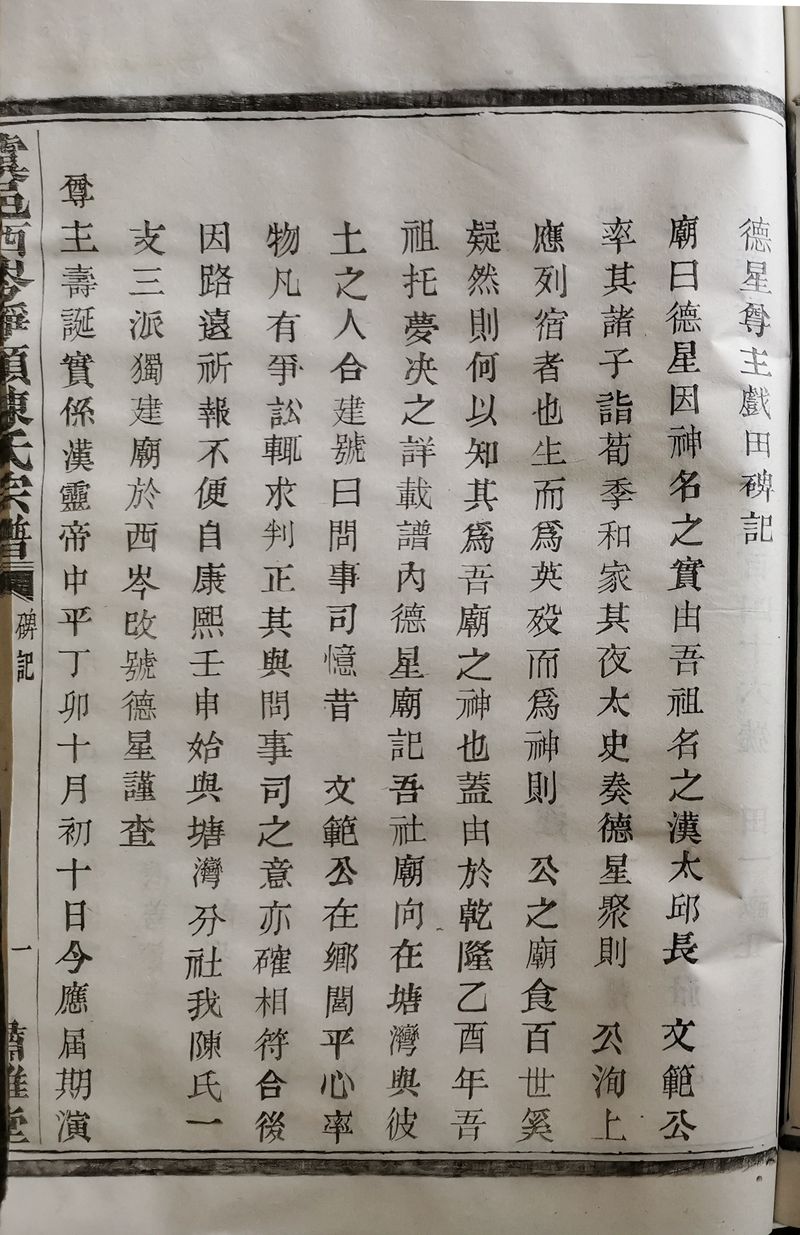 德星尊主戲田碑記
廟曰德星因神名之實由吾祖名之漢太邱長　文範公
率其諸子詣荀季和家其夜太史奏德星聚則　公洵上
應列宿者也生而爲英殁而爲神則　公之廟食百世奚
疑然則何以知其爲吾廟之神也蓋由於乾隆乙酉年吾
祖托夢决之詳載譜內德星廟記吾社廟向在塘灣與彼
土之人合建號曰問事司憶昔　文範公在鄉閭平心率
物凡有爭訟輒求判正其與問事司之意亦確相符合後
因路遠祈報不便自康熙壬申始與塘灣分社我陳氏一
支三派獨建廟於西岑改號德星謹查
尊主壽誕實係漢靈帝中平丁卯十月初十日今應屆期演
虞邑西岑 陳氏宗譜
碑記
一